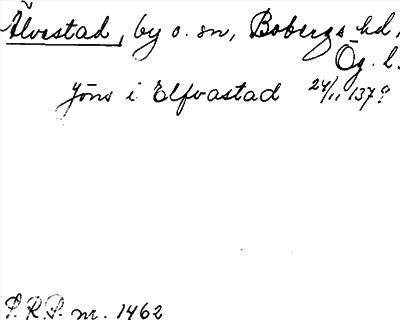 Älvestad, by o. sn, Bobergs hd,
Ög. l.
Jöns i Elfvastad 24/11 1379
S.R.P. nr. 1462